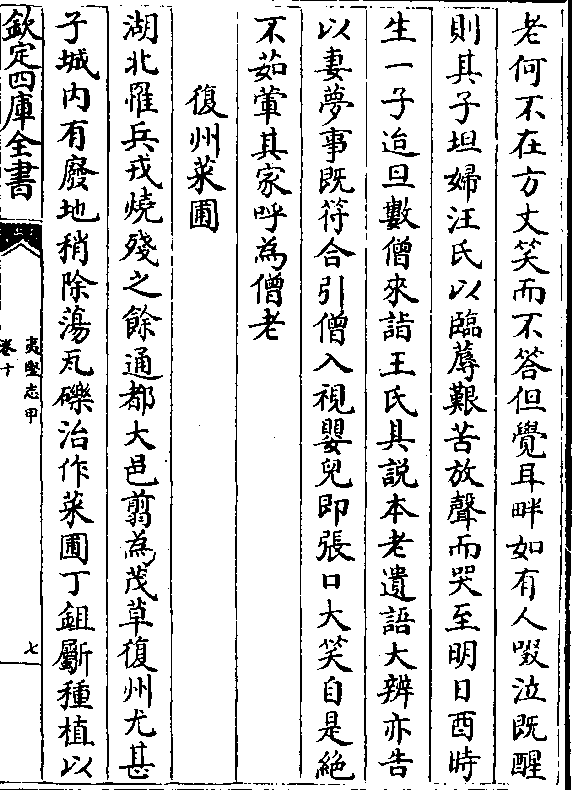 老何不在方丈笑而不答但覺耳畔如有人啜泣既醒
則其子坦婦汪氏以臨蓐艱苦放聲而哭至明日酉時
生一子迨旦數僧來詣王氏具說本老遺語大辨亦告
以妻夢事既符合引僧入視嬰兒即張口大笑自是絕
不茹葷其家呼為僧老
復州菜圃
湖北罹兵戎燒殘之餘通都大邑翦為茂草復州尤甚
子城內有廢地稍除蕩瓦礫治作菜圃丁鉏斸種植以
欽定四庫全書
夷堅志甲
卷十
七